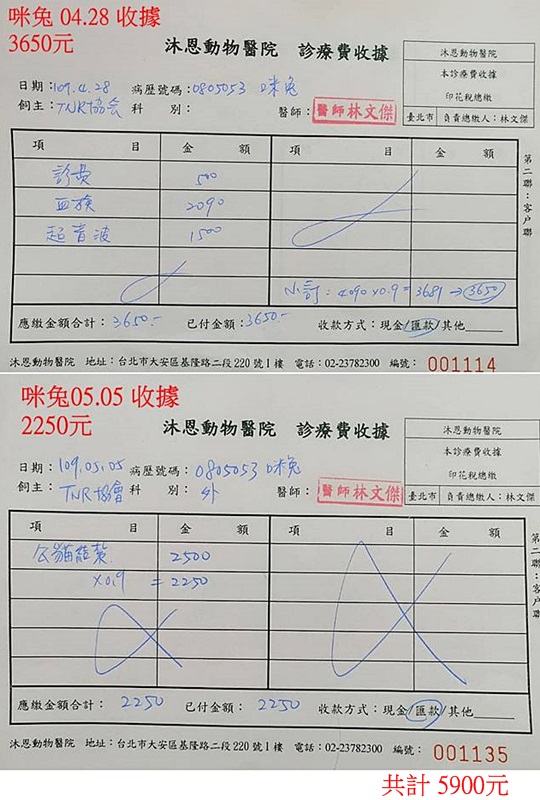 咪兔 04.28 收據
3650元
沐恩動物醫院 診療費收據
沐恩動物醫院
本診療費收據
印花稅總繳
臺北市 負責總繳人:林文傑
日期:109.4.28 病歷號碼:0805053 咪兔
飼主:TNR協会 科 別: 醫師:醫師林文傑
項 目 金 額 項 目 金 額
診費 500
血檢 2090
超音波 1500
小計:4090×0.9=3681→3650
應繳金額合計:3650.- 已付金額:3650.- 收款方式:現金/匯款/其他
沐恩動物醫院 地址:台北市大安區基隆路二段220號1樓 電話:02-23782300 編號: 001114
第二聯:客戶聯
咪兔05.05 收據
2250元
沐恩動物醫院 診療費收據
沐恩動物醫院
本診療費收據
印花稅總繳
臺北市 負責總繳人:林文傑
日期:109.05.05 病歷號碼:0805053 咪兔
飼主:TNR協會 科 別:外 醫師:醫師林文傑
項 目 金 額 項 目 金 額
公貓結紮 2500
×0.9 =2250
應繳金額合計:2250 已付金額:2250 收款方式:現金/匯款/其他
沐恩動物醫院 地址:台北市大安區基隆路二段220號1樓 電話:02-23782300 編號: 001135
第二聯:客戶聯
共計 5900元